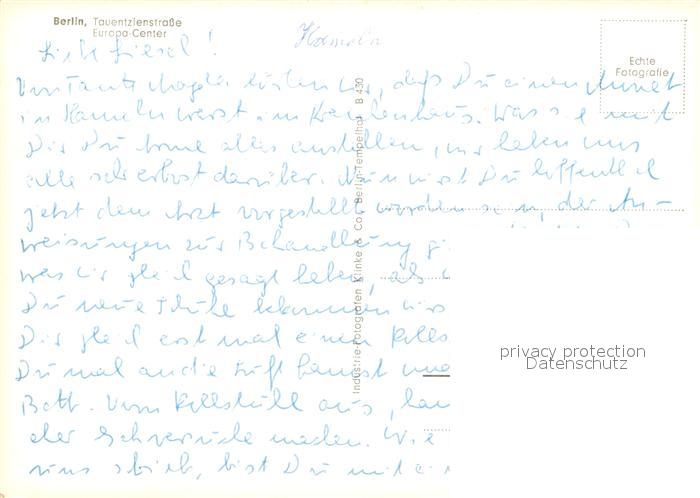 Berlin, Tauentzienstraße
Europa-Center
Hameln
Echte
Fotografie
Liebe Liesel!
Von Tante Magda hörten wir, daß Du einen Monat
in Hameln warst im Krankenhaus. Was sie mit
Dir Du arme alles anstellen, wir haben uns
alle sehr erbost darüber. Nun wirst Du hoffentlich
jetzt dem Arzt vorgestellt worden sein, der An-
weisungen zur Behandlung
was wir gleich gesagt haben, als
Du neue
Dir gleich erst mal einen
Du mal an die Luft kannst und
Bett. Vom Rollstuhl aus,
oder Gehversuche machen. Wie
uns schrieb, bist Du mit
Industrie-Fotografen Klinke & Co. Berlin-Tempelhof B 430
privacy protection
Datenschutz